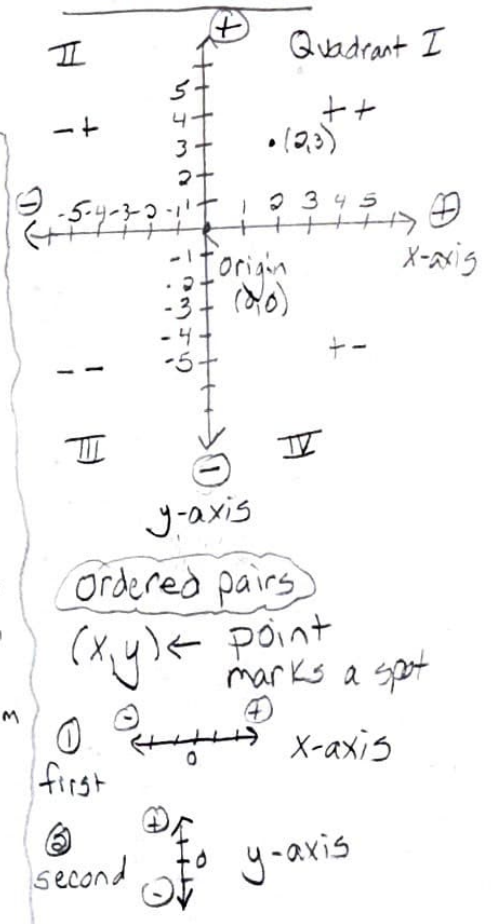 +
II Quadrant I
5
-+ 4 ++
3 .(2,3)
2
- -5-4-3-2-1 1 1 2 3 4 5 +
x-axis
-1 origin
-2 (0,0)
-3
-4 +-
-5
--
III IV
-
y-axis
ordered pairs
(x,y)← point
marks a spot
- +
1 x-axis
0
first
+
2 0 y-axis
second
-
m